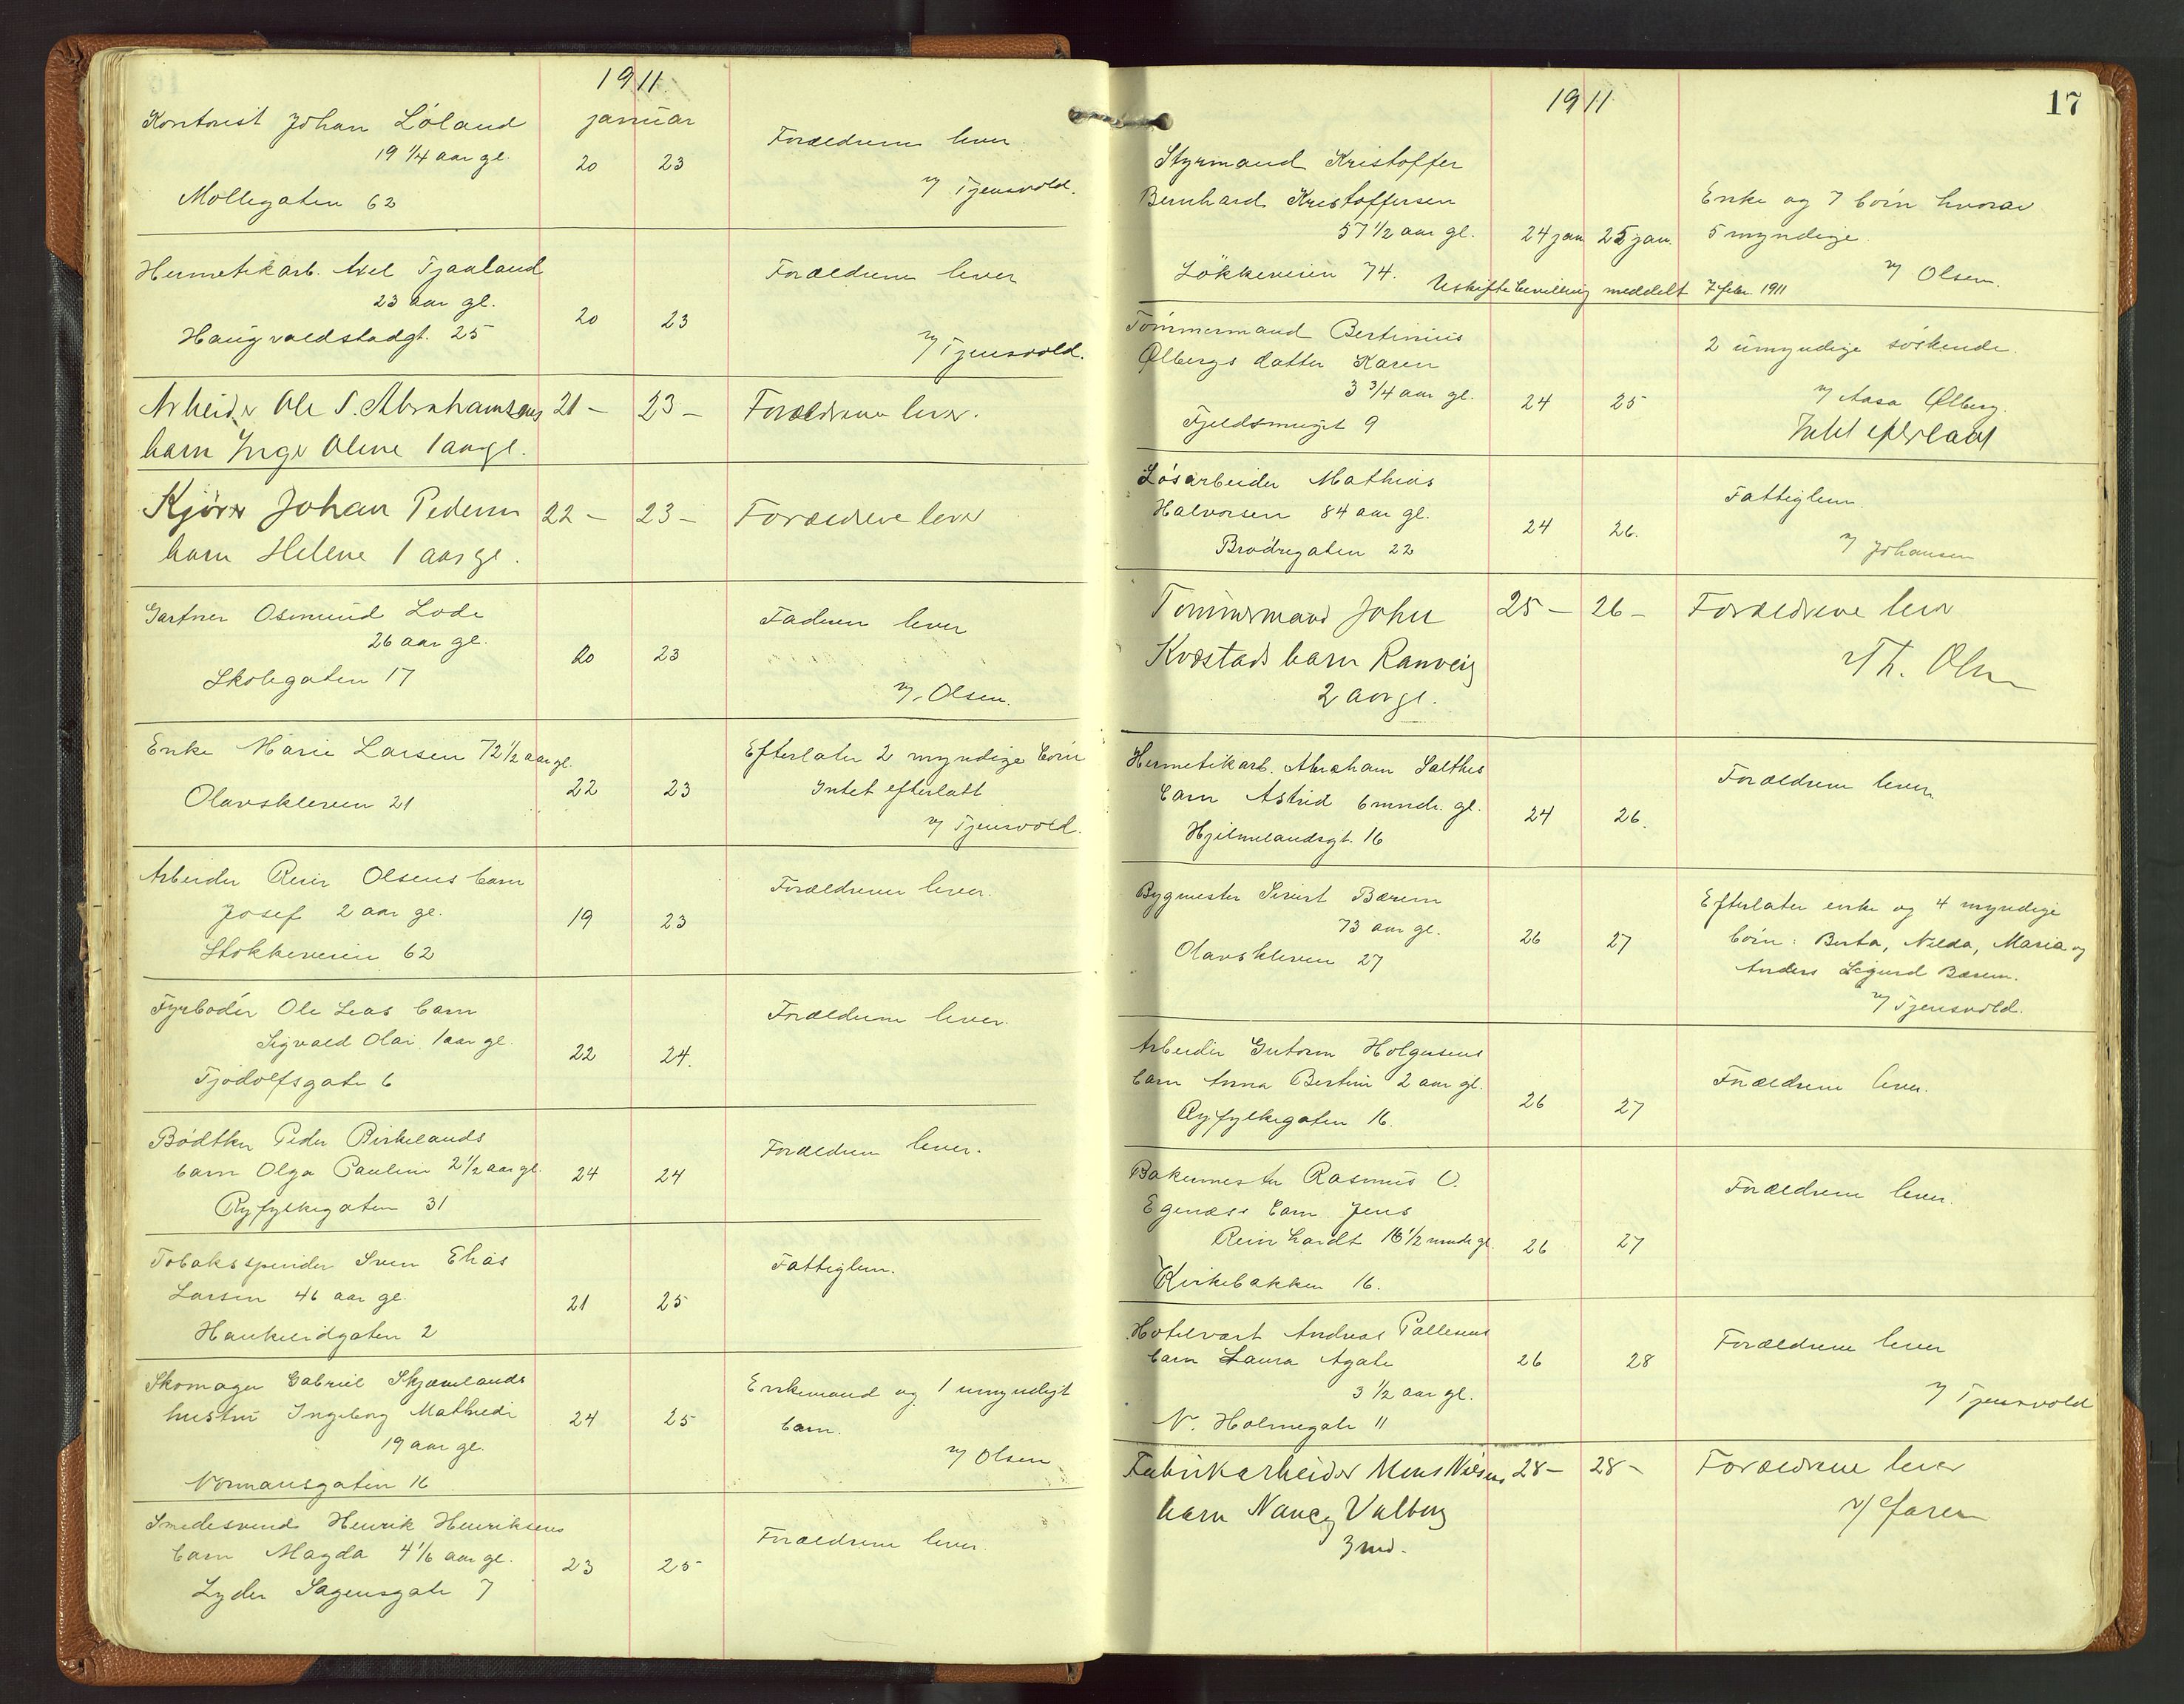 1911.
januar
Kontorist Johan Löland
19 1/4 aar gl.
Möllegaten 62
20 23
Forældrene lever
v/ Tjensvold.
Hermetikarb. Axel Tjaaland
23 aar gl.
Haugvaldstadgt. 25
20 23
Forældrene lever
v/ Tjensvold.
Arbeider Ole S. Abrahamsens 21 – 23 – Forældrene lever.
barn Inga Oline 1 aargl.
Kjører Johan Pedersen 22 – 23 – Forældrene lever
barn Helene 1 aar gl.
Gartner Osmund Lode
26 aar gl.
Skolegaten 17
20 23
Faderen lever
v/ Olsen.
Enke Marie Larsen 72 1/2 aar gl.
Olavskleven 21
22 23
Efterlater 2 myndige börn
Intet efterlatt
v/ Tjensvold.
Arbeider Reier Olsens barn
Josef 2 aar gl.
Stokkeveien 62
19 23
Forældrene lever.
Fyrböder Ole Leas barn
Sigvald Olai 1 aar gl.
Tjodolfsgate 6
22 24.
Forældrene lever.
Bödtker Peder Birkelands
barn Olga Pauline 2 1/2 aar gl.
Ryfylkegaten 31
24 24
Forældrene lever.
Tobaksspinder Sven Elias
Larsen 46 aar gl.
Haukelidgaten 2
21 25
Fattiglem.
Skomager Gabriel Skjævelands
hustru Ingeborg Mathilde
19 aar gl.
Normansgaten 16
24 25
Enkemand og 1 umyndigt
barn.
v/ Olsen
Smedesvend Henrik Henriksens
barn Magda 4 1/6 aar gl.
Lyder Sagensgate 7
23 25
Forældrene lever.
17
1911
Styrmand Kristoffer
Bernhard Kristoffersen
57 1/2 aar gl.
Lökkeveien 74.
24 jan 25 jan.
Enke og 7 börn hvorav
5 myndige.
v/ Olsen.
Uskiftebevilling meddelt 7 febr. 1911
Tömmermand Bertinius
Ølbergs datter Karen
3 3/4 aar gl.
Fjeldsmugt 9
24 25
2 umyndige söskende.
v/ Aasa Ølberg.
Intet efterladt
Lösarbeider Mathias
Halvorsen 84 aar gl.
Brödregaten 22
24 26.
Fattiglem.
v/ Johansen
Tömmermand John 25 – 26 – Forældrene lever
Kvæstads barn Ranveig
2 aar gl.
Th. Olsen
Hermetikarb. Abraham Salthes
barn Astrid 6 mndr. gl.
Hjelmelandsgt. 16
24 26.
Forældrene lever.
Bygmester Sivert Bærem
73 aar gl.
Olavskleven 27
26 27
Efterlater enke og 4 myndige
börn: Berta, Nilda, Maria og
Anders Sigurd Bærem.
v/ Tjensvold.
Arbeider Gutorm Holgersens
barn Anna Bertine 2 aar gl.
Ryfylkegaten 16.
26 27
Forældrene lever.
Bakermester Rasmus O.
Egenæss barn Jens
Reinhardt 16 1/2 mndr gl.
Kirkebakken 16.
26 27
Forældrene lever.
Hotelvært Andreas Pallesens
barn Laura Agate
3 1/2 aar gl.
N. Holmegate 11
26 28
Forældrene lever
v/ Tjensvold
Fabrikarbeider Mons Nilsens 28 – 28 – Forældrene lever
barn Nancy Valborg
3 md.
v/ faren